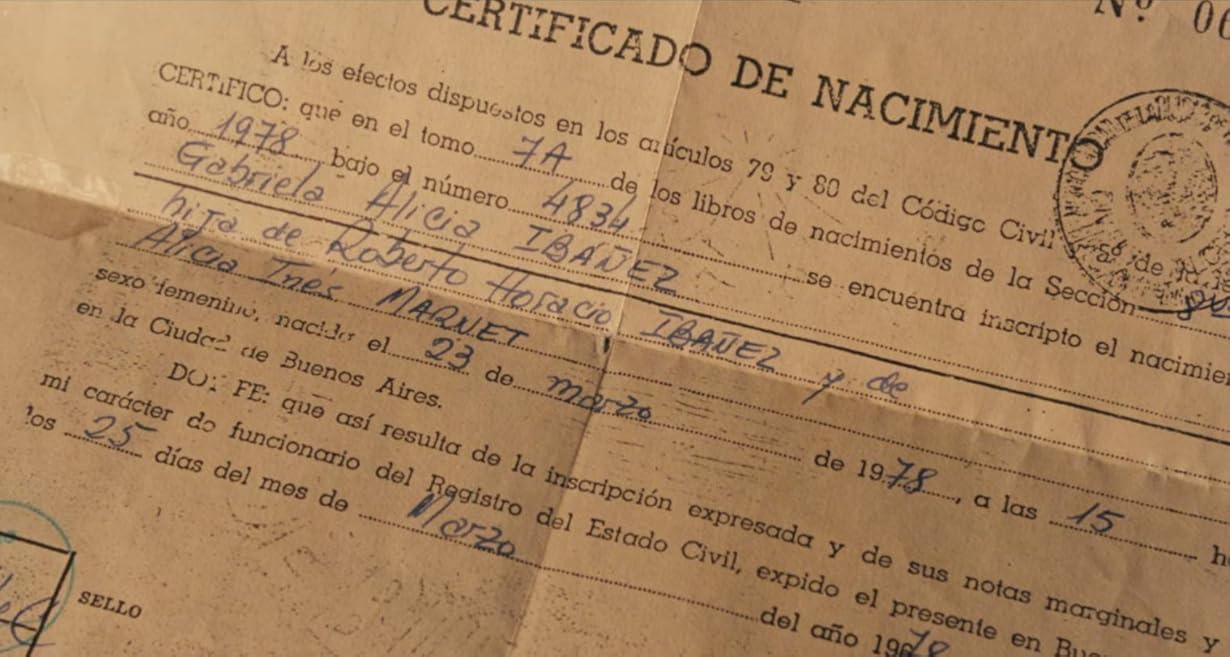 CERTIFICADO DE NACIMIENTO
Nº 00
A los efectos dispuestos en los artículos 79 y 80 del Código Civil
CERTIFICO: que en el tomo 7A de los libros de nacimientos de la Sección
año 1978 bajo el número 4834 se encuentra inscripto el nacimien
Gabriela Alicia IBAÑEZ
hija de Roberto Horacio IBAÑEZ y de
Alicia Inés MARNET
sexo femenino, nacida el 23 de marzo de 1978, a las 15 h
en la Ciudad de Buenos Aires.
DOY FE: que así resulta de la inscripción expresada y de sus notas marginales y
mi carácter de funcionario del Registro del Estado Civil, expido el presente en Bue
los 25 días del mes de Marzo del año 1978
SELLO